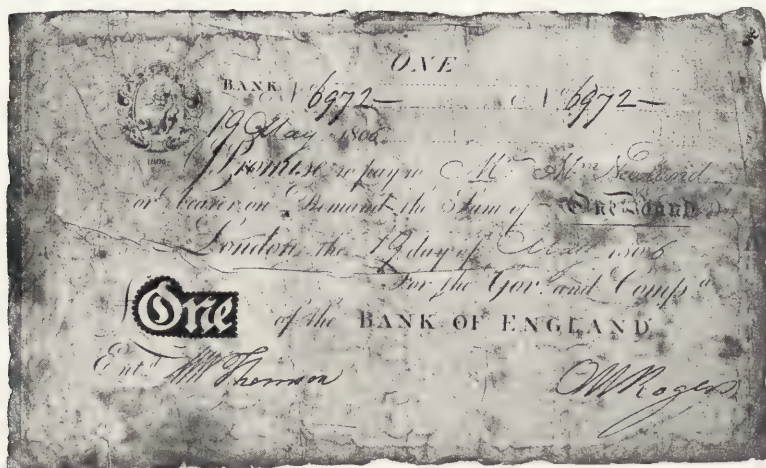 ONE
BANK No 6972— No 6972—
19 May 1806
1806
I Promise to pay to Mr. Newland
or bearer on Demand the Sum of One Pound
London, the 19 day of May 1806
For the Gov.r and Comp.a
One of the BANK OF ENGLAND
Ent.d Thomson Rogers